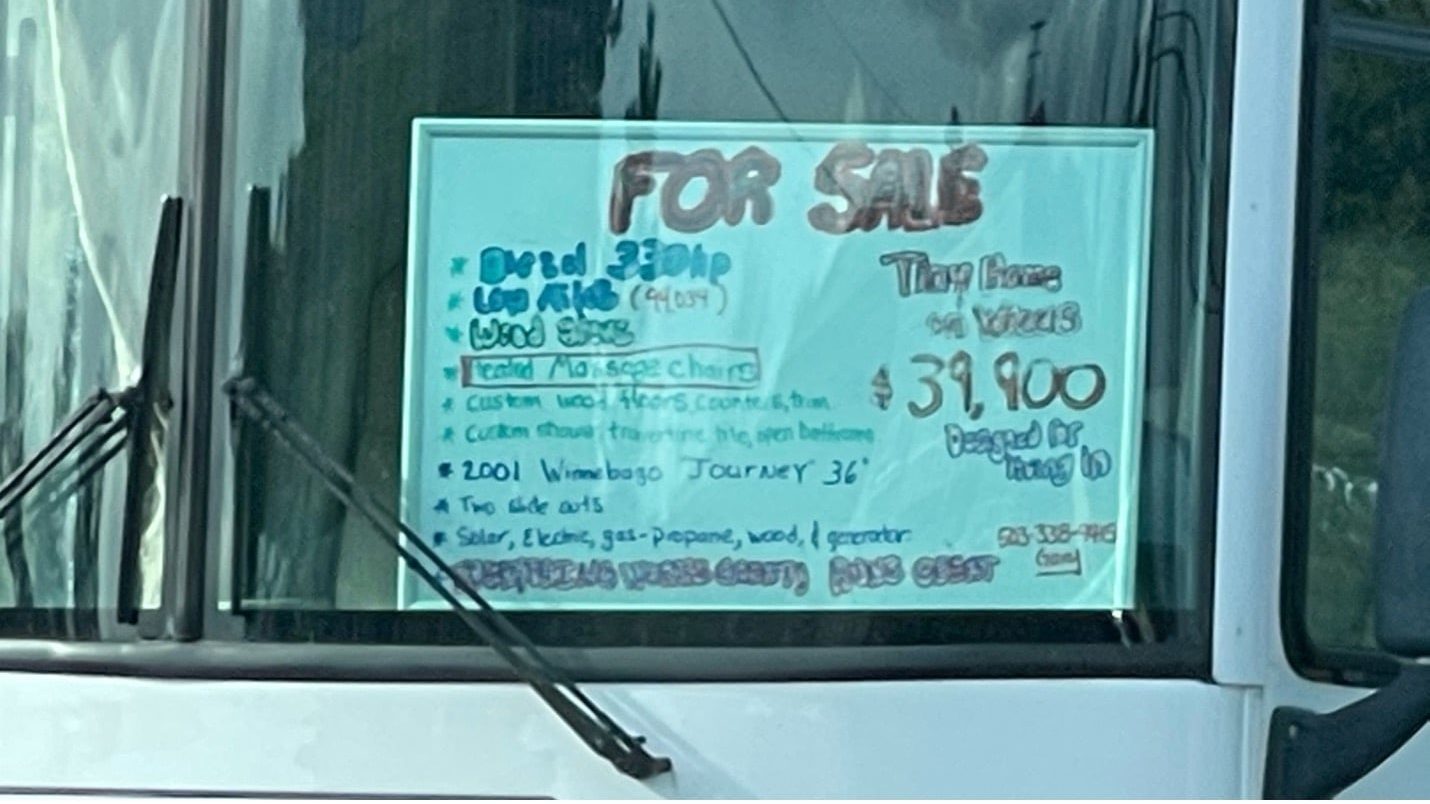 FOR SALE
* Diesel 330hp
* Low Miles (94,034)
* Wood Stove
* Heated Massage chairs
* Custom wood floors, counters, trim
* Custom shower, travertine tile, open bathroom
* 2001 Winnebago Journey 36'
* Two slide outs
* Solar, Electric, gas-propane, wood, & generator
* EVERYTHING WORKS GREAT, RUNS GREAT
Tiny Home
on Wheels
$39,900
Designed for
living in
503-338-